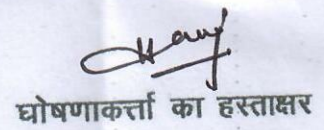 घोषणाकर्त्ता का हस्ताक्षर